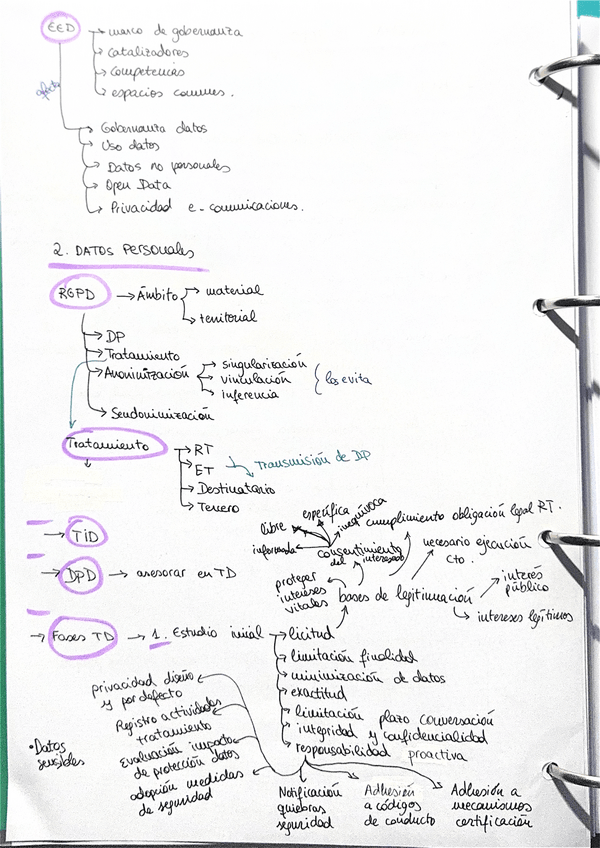 EED → marco de gobernanza
→ catalizadores
→ competencias
→ espacios comunes.
afecta
→ Gobernanza datos
→ Uso datos
→ Datos no personales
→ Open Data
→ Privacidad e-comunicaciones.
2. DATOS PERSONALES
RGPD → Ámbito → material
→ territorial
→ DP
→ Tratamiento
→ Anonimización → singularización
→ vinculación
→ inferencia
los evita
→ Seudonimización
Tratamiento → RT
→ ET
Transmisión de DP
→ Destinatario
→ Tercero
→ TID
→ DPD → asesorar en TD
→ Fases TD → 1. Estudio inicial → licitud
bases de legitimación
consentimiento del interesado
libre
específica
inequívoca
informada
cumplimiento obligación legal RT.
necesario ejecución cto.
interés público
intereses legítimos
proteger intereses vitales
→ limitación finalidad
→ minimización de datos
→ exactitud
→ limitación plazo conversación
→ integridad y confidencialidad
→ responsabilidad proactiva
privacidad diseño
y por defecto
Registro actividades
tratamiento
Evaluación impacto
de protección datos
adopción medidas
de seguridad
Notificación
quiebras
seguridad
Adhesión
a códigos
de conducto
Adhesión a
mecanismos
certificación
• Datos
sensibles